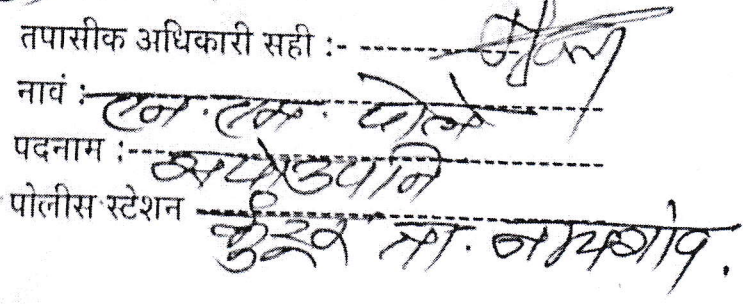 तपासीक अधिकारी सही :-
नावं :- एन. एम. दोले
पदनाम :-
पोलीस स्टेशन कुंटूर ता. नायगांव.